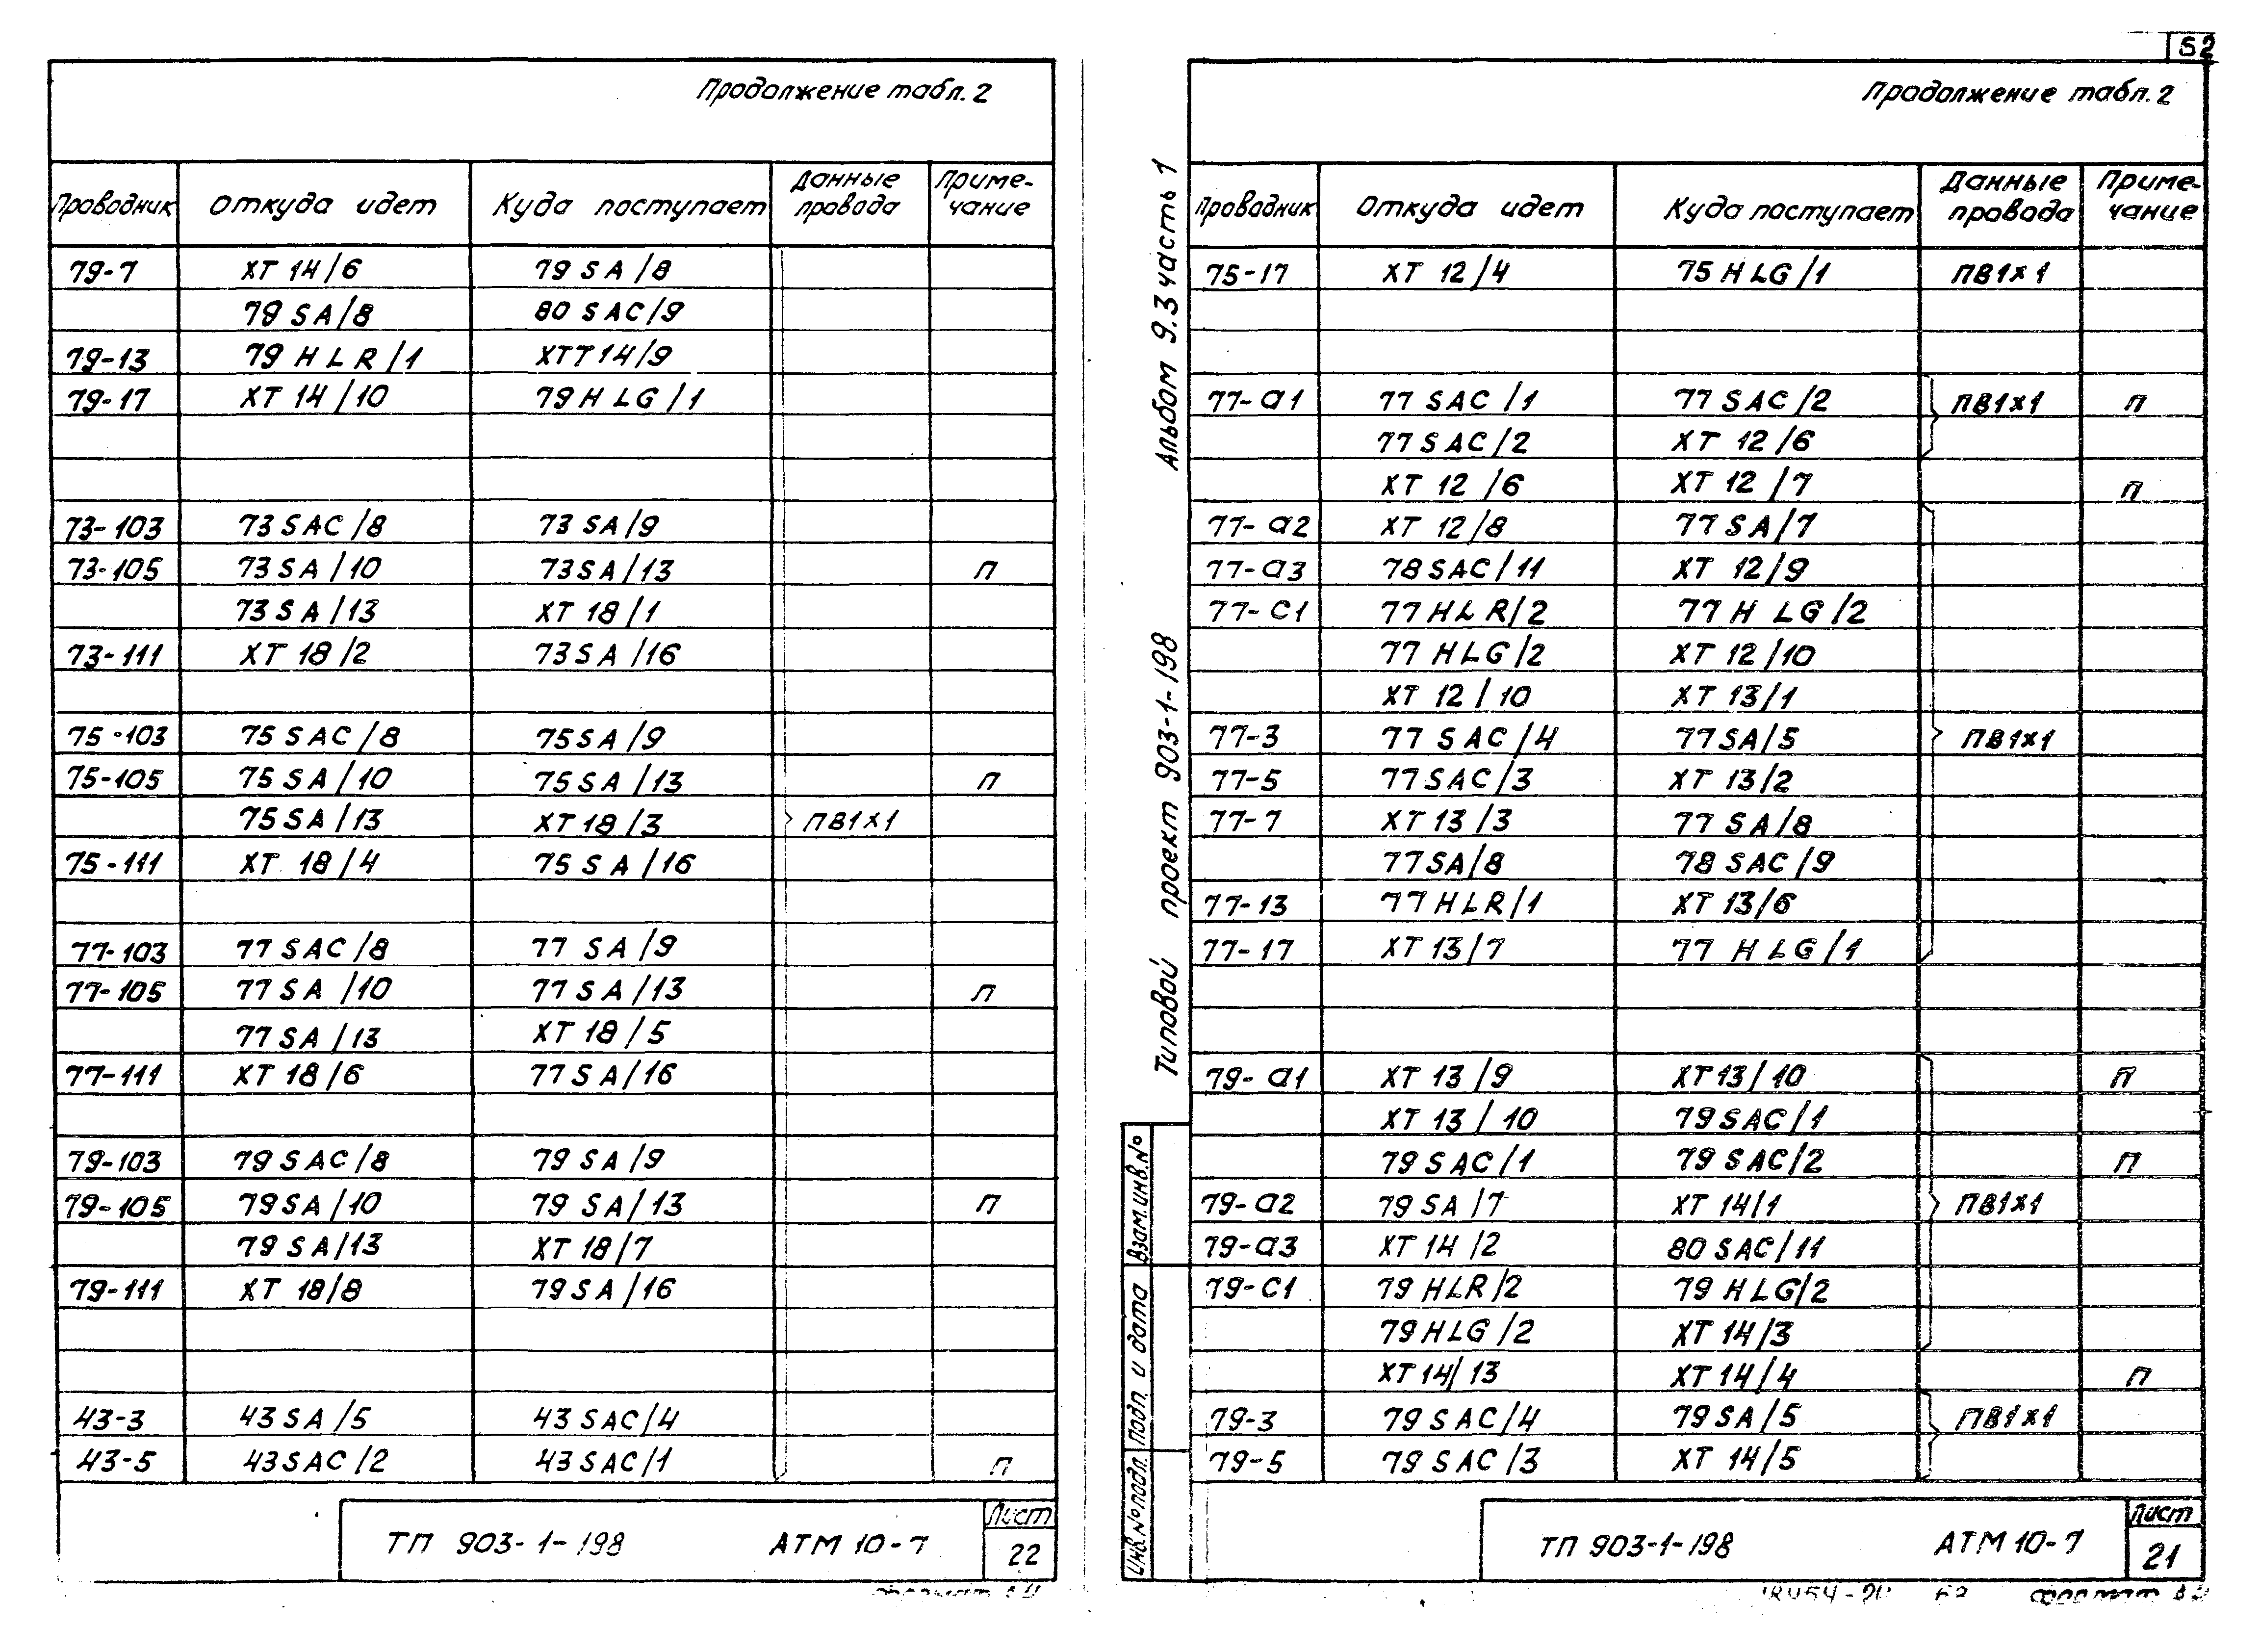 Продолжение табл. 2
Проводник Откуда идет Куда поступает Данные провода Приме-чание
79-7 XT 14/6 79 SA/8
79 SA/8 80 SAC/9
79-13 79 HLR/1 XTT14/9
79-17 XT 14/10 79 HLG/1
73-103 73 SAC/8 73 SA/9
73-105 73 SA/10 73SA/13 П
73 SA/13 XT 18/1
73-111 XT 18/2 73SA/16
75-103 75 SAC/8 75SA/9
75-105 75 SA/10 75SA/13 П
75SA/13 XT 18/3 ПВ1×1
75-111 XT 18/4 75 SA/16
77-103 77 SAC/8 77 SA/9
77-105 77 SA/10 77 SA/13 П
77 SA/13 XT 18/5
77-111 XT 18/6 77 SA/16
79-103 79 SAC/8 79 SA/9
79-105 79SA/10 79 SA/13 П
79 SA/13 XT 18/7
79-111 XT 18/8 79SA/16
43-3 43 SA/5 43 SAC/4
43-5 43SAC/2 43 SAC/1 П
ТП 903-1-198 АТМ 10-7 Лист 22
52
Продолжение табл. 2
Проводник Откуда идет Куда поступает Данные провода Приме-чание
75-17 XT 12/4 75 HLG/1 ПВ1×1
77-а1 77 SAC/1 77 SAC/2 ПВ1×1 П
77SAC/2 XT 12/6
XT 12/6 XT 12/7 П
77-а2 XT 12/8 77 SA/7
77-а3 78SAC/11 XT 12/9
77-С1 77 HLR/2 77 HLG/2
77 HLG/2 XT 12/10
XT 12/10 XT 13/1
77-3 77 SAC/4 77SA/5 ПВ1×1
77-5 77SAC/3 XT 13/2
77-7 XT 13/3 77 SA/8
77SA/8 78 SAC/9
77-13 77HLR/1 XT 13/6
77-17 XT 13/7 77 HLG/1
79-а1 XT 13/9 XT13/10 П
XT 13/10 79SAC/1
79 SAC/1 79 SAC/2 П
79-а2 79 SA/7 XT 14/1 ПВ1×1
79-а3 XT 14/2 80 SAC/11
79-С1 79 HLR/2 79 HLG/2
79HLG/2 XT 14/3
XT14/13 XT14/4 П
79-3 79 SAC/4 79SA/5 ПВ1×1
79-5 79 SAC/3 XT 14/5
ТП 903-1-198 АТМ 10-7 Лист 21
Альбом 9.3 часть 1
Типовой проект 903-1-198
Взам.инв.№
Подп. и дата
Инв.№подл.
Формат